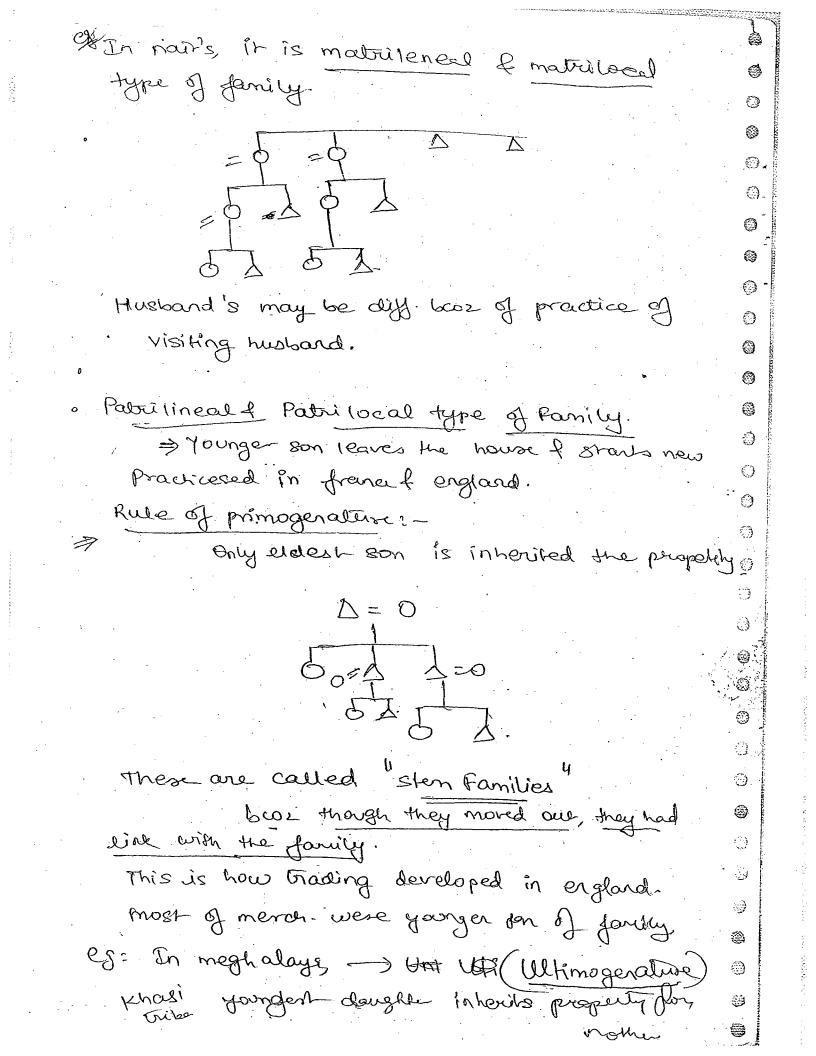 eg In nair's, it is matrileneal & matrilocal
type of family.
= O = O Δ Δ
= O Δ O Δ
O Δ O Δ
Husband's may be diff. bcoz of practice of
visiting husband.
Patrilineal & Patrilocal type of Family.
⇒ Younger son leaves the house & starts new
Practicesed in france & england.
Rule of primogenature:-
⇒ Only eldest son is inherited the propetty
Δ = O
O O = Δ Δ = O
O Δ O Δ
These are called "Stem Families"
bcoz though they moved out, they had
link with the family.
This is how trading developed in england.
most of merch. were younger son of family
eg: In meghalaya, → (Ultimogenature)
Khasi youngest daughter inherits property from
tribe mother